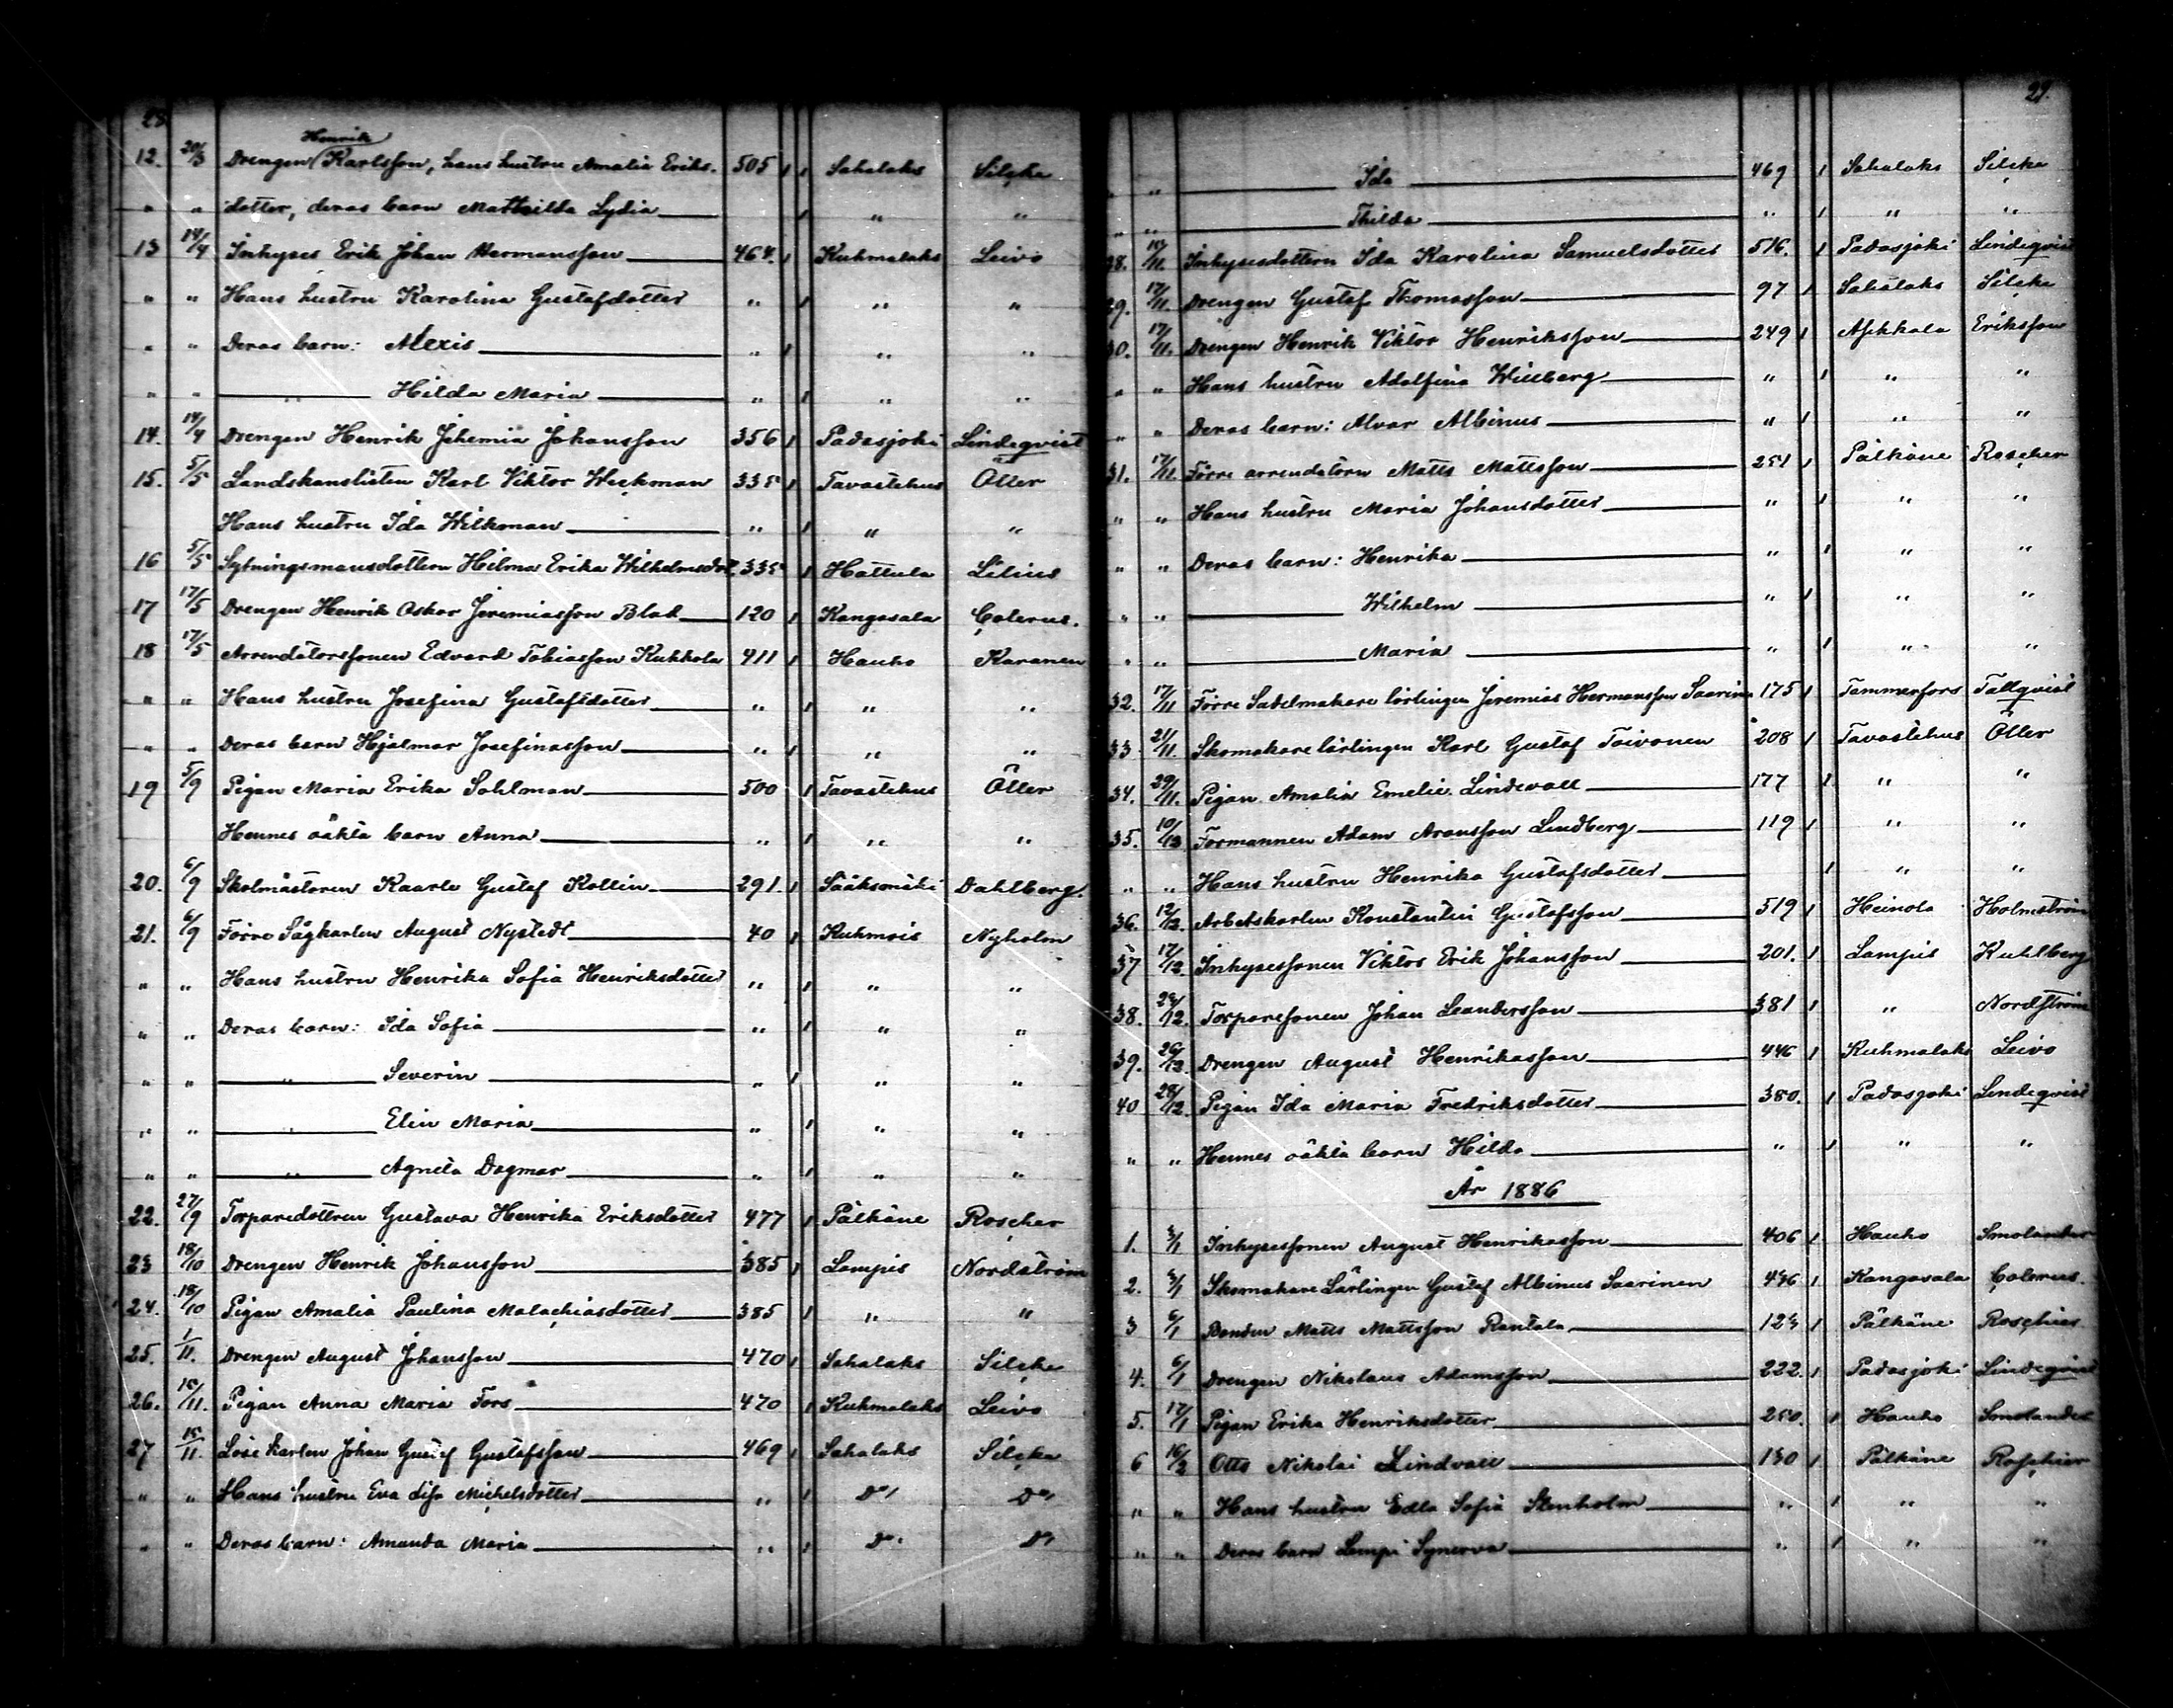 28
12. 20/3 Drengen Henrik Karlsson, hans hustru Amalia Eriks- 505 1 1 Sahalaks Silçka
" " dotter, deras barn Mathilda Lydia 1 " "
13 14/4 Inhyses Erik Johan Hermansson 464. 1 Kuhmalaks Leivo
" " Hans hustru Karolina Gustafdotter " 1 " "
" " Deras barn: Alexis " 1 " "
" " " Hilda Maria " 1 " "
14. 14/4 Drengen Henrik Jehemia Johansson 356 1 Padasjoki Lindeqvist
15. 5/5 Landskanslisten Karl Viktor Weckman 335 1 Tavastehus Öller
Hans hustru Ida Wilkman " 1 " "
16 5/5 Sytningsmansdottern Hilma Erika Wilhelmsdot. 335 1 Hattula Lilius
17 17/5 Drengen Henrik Oskar Jeremiasson Blad 120 1 Kangasala Çolerus.
18 17/5 Arrendatorssonen Edvard Tobiasson Kukkola 411 1 Hauho Karanen
" " Hans hustru Josefina Gustafsdotter " 1 " "
" " Deras barn Hjalmar Josefinasson " 1 " "
19 5/9 Pigan Maria Erika Sahlman 500 1 Tavastehus Öller
Hennes oäkta barn Anna " 1 " "
20. 6/9 Skolmästaren Kaarle Gustaf Kollin 291. 1 Sääksmäki Dahlberg.
21. 6/9 Förre Sågkarlen August Nystedt 40 1 Kuhmois Nyholm
" " Hans hustru Henrika Sofia Henriksdotter " 1 " "
" " Deras barn: Ida Sofia " 1 " "
" " " Severin " 1 " "
" " " Elin Maria " 1 " "
" " " Agneta Dagmar " 1 " "
22. 27/9 Torparedottren Gustava Henrika Eriksdotter 477 1 Pälkäne Roscher
23 18/10 Drengen Henrik Johansson 385 1 Lampis Nordström
24. 18/10 Pigan Amalia Paulina Malachiasdotter 385 1 " "
25. 1/11. Drengen August Johansson 470 1 Sahalaks Silçka
26. 15/11. Pigan Anna Maria Fors 470 1 Kuhmalaks Leivo
27 15/11. Lösekarlen Johan Gustaf Gustafsson 469 1 Sahalaks Silçka
" " Hans hustru Eva Lisa Michelsdotter " 1 Do Do
" " Deras barn: Amanda Maria " 1 Do Do
29.
" " Ida 469 1 Sahalaks Silçka
" " Thilda " 1 " "
28. 15/11. Inhysesdottern Ida Karolina Samuelsdotter 516. 1 Padasjoki Lindeqvist
29. 17/11. Drengen Gustaf Thomasson 97 1 Sahalaks Silçka
30. 17/11. Drengen Henrik Viktor Henriksson 249 1 Asikkala Eriksson
" " Hans hustru Adolfina Willberg " 1 " "
" " Deras barn: Alvar Albinus " 1 " "
31. 17/11. Förre arrendatorn Matts Mattsson 251 1 Pälkäne Roscher
" " Hans hustru Maria Johansdotter " 1 " "
" " Deras barn: Henrika " 1 " "
" " Wilhelm " 1 " "
" " Maria " 1 " "
32. 17/11 Förre Sadelmakare lärlingen Jeremias Hermansson Saarinen 175 1 Tammerfors Tallqvist
33 21/11. Skomakarelärlingen Karl Gustaf Toivonen 208 1 Tavastehus Öller
34. 29/11. Pigan Amalia Emelie Lindevall 177 1 " "
35. 10/12 Formannen Adam Aronsson Lindberg 119 1 " "
" " Hans hustru Henrika Gustafsdotter 1 " "
36. 12/12. Arbetskarlen Konstantin Gustafsson 519 1 Heinola Holmström
37 17/12 Inhysessonen Viktor Erik Johansson 201. 1 Lampis Kuhlberg
38. 24/12. Torparesonen Johan Leandersson 381 1 " Nordström
39. 26/12. Drengen August Henrikasson 446 1 Kuhmalaks Leivo
40 28/12. Pigan Ida Maria Fredriksdotter 380. 1 Padasjoki Lindeqvist
" " Hennes oäkta barn Hilda " 1 " "
År 1886
1. 3/1 Inhysessonen August Henrikasson 406 1 Hauho Smolander
2. 3/1 Skomakare Lärlingen Gustaf Albinus Saarinen 446 1 Kangasala Çolerus.
3 6/1 Bonden Matts Mattsson Rantala 123 1 Pälkäne Roschier
4. 6/1 Drengen Nikolaus Adamsson 222. 1 Padasjoki Lindeqvist
5. 12/1 Pigan Erika Henriksdotter 250. 1 Hauho Smolander
6 16/2 Otto Nikolai Lindvall 130 1 Pälkäne Roschier
" " Hans hustru Edla Sofia Stenholm " 1 " "
" " Deras barn Lempi Synerva " 1 " "